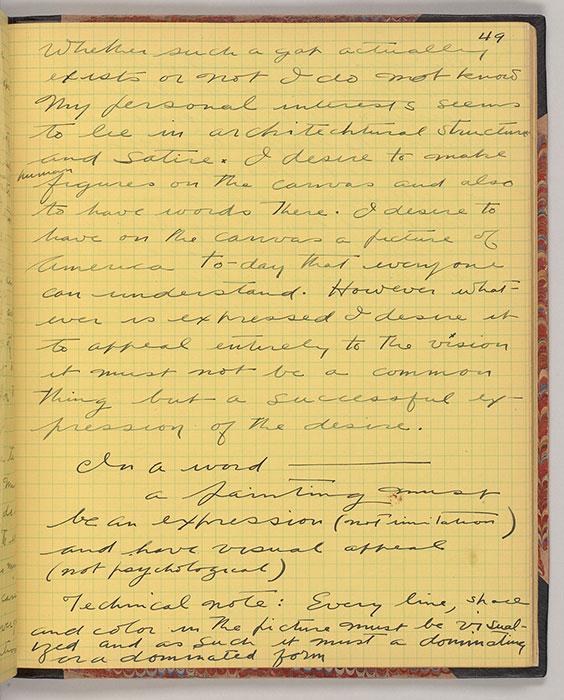 49
Whether such a gap actually
exists or not I do not know
My personal interests seems
to lie in architechtural structure
and satire. I desire to make
human
figures on the canvas and also
to have words there. I desire to
have on the canvas a picture of
America to-day that everyone
can understand. However what-
ever is expressed I desire it
to appeal entirely to the vision
it must not be a common
thing but a successful ex-
pression of the desire.
In a word
a painting must
be an expression (not imitation)
and have visual appeal
(not psychological)
Technical note: Every line, space
and color in the picture must be visual-
ized and as such it must a dominating
or a dominated form